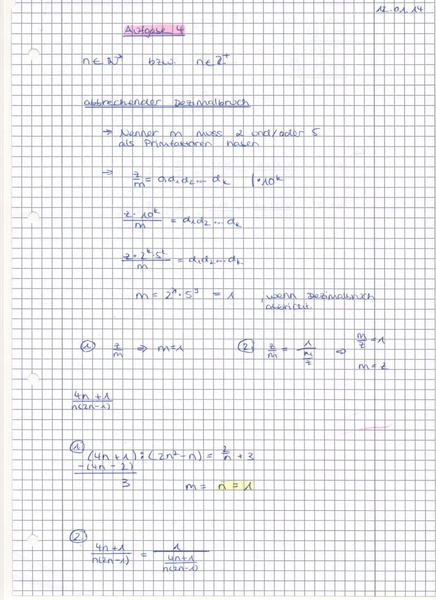 12.01.14
Aufgabe 4
n ∈ ℕ* bzw. n ∈ ℤ⁺
abbrechender Dezimalbruch
→ Nenner m muss 2 und/oder 5
als Primfaktoren haben
→ z/m = 0,d₁d₂...dₖ | · 10ᵏ
z · 10ᵏ / m = d₁d₂...dₖ
z · 2ᵏ · 5ᵏ / m = d₁d₂...dₖ
= 1 , wenn Dezimalbruch
① z/m ⇒ m = 1 ② z/m = 1/(m/z) ⇒ m/z = 1
m = z
4n+1 / n(2n-1)
① (4n+1) : (2n²-n) = 2/n + 3
-(4n-2)
3 m = n = 1
② 4n+1 / n(2n-1) = 1 / (4n+1 / n(2n-1))